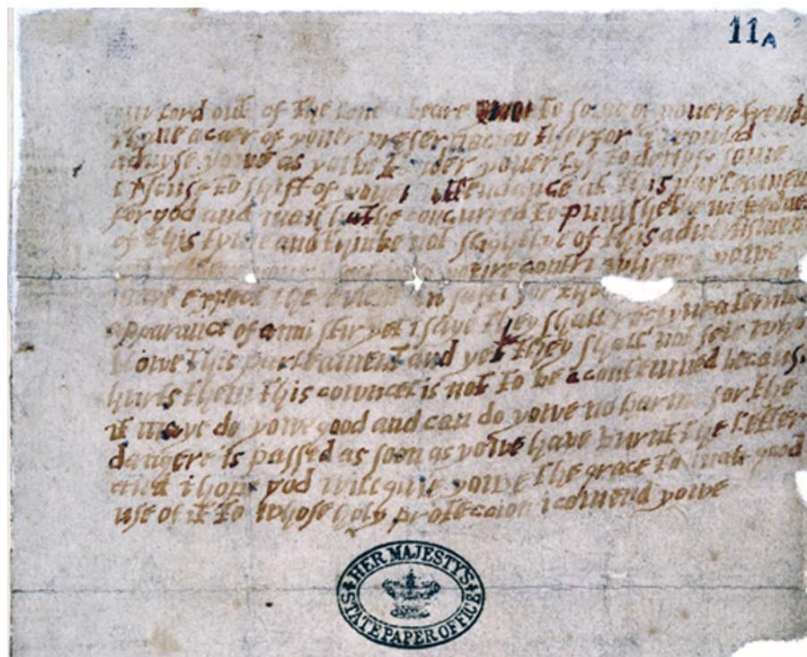 11A
lord out of the love i beare to some of youere frends
i have a caer of youer preservacion therfor i would
advyse yowe as yowe tender youer lyf to devyse some
excuse to shift of youer attendance at this parleament
for god and man hathe concurred to punishe the wickednes
of this tyme and thinke not slightlye of this advertisment
youre contri wheare yowe
maye expect the event in safti for
apparance of anni stir yet i saye they shall receyve a terrible
blowe this parleament and yet they shall not seie who
hurts them this cowncel is not to be acontemned because
it maye do yowe good and can do yowe no harme for the
dangere is passed as soon as yowe have burnt the letter
and i hope god will give yowe the grace to mak good
use of it to whose holy proteccion i comend yowe
HER MAJESTY'S
STATE PAPER OFFICE